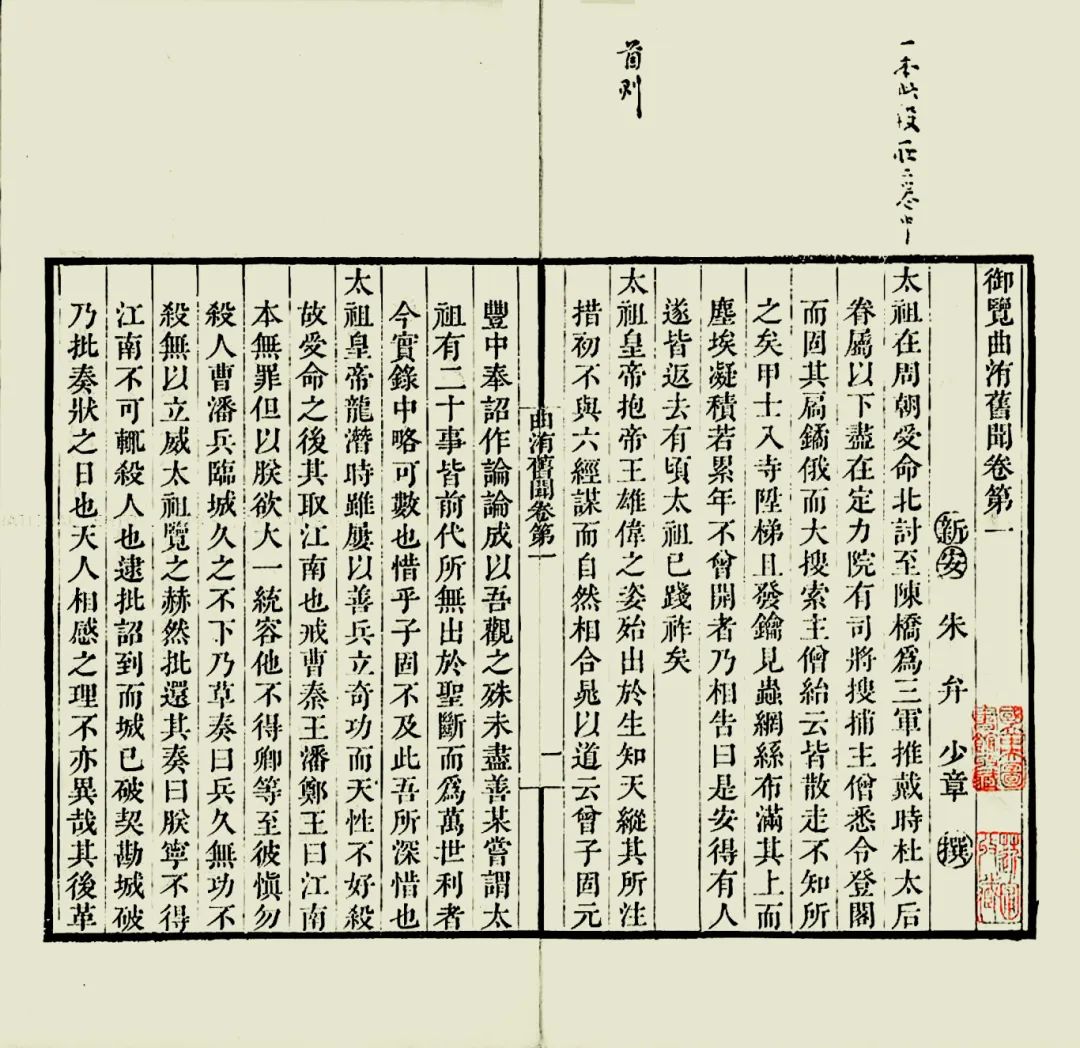 一本此段在二卷中
首列
御覽曲洧舊聞卷第一
新安 朱弁 少章 撰
太祖在周朝受命北討至陳橋爲三軍推戴時杜太后
眷屬以下盡在定力院有司將搜捕主僧悉令登閣
而固其扃鐍俄而大搜索主僧紿云皆散走不知所
之矣甲士入寺陞梯且發鑰見蟲網絲布滿其上而
塵埃凝積若累年不曾開者乃相告曰是安得有人
遂皆返去有頃太祖已踐祚矣
太祖皇帝抱帝王雄偉之姿殆出於生知天縱其所注
措初不與六經謀而自然相合晁以道云曾子固元
曲洧舊聞卷第一
一
豐中奉詔作論論成以吾觀之殊未盡善某嘗謂太
祖有二十事皆前代所無出於聖斷而爲萬世利者
今實錄中略可數也惜乎子固不及此吾所深惜也
太祖皇帝龍潛時雖屢以善兵立奇功而天性不好殺
故受命之後其取江南也戒曹秦王潘鄭王曰江南
本無罪但以朕欲大一統容他不得卿等至彼愼勿
殺人曹潘兵臨城久之不下乃草奏曰兵久無功不
殺無以立威太祖覽之赫然批還其奏曰朕寧不得
江南不可輒殺人也逮批詔到而城已破契勘城破
乃批奏狀之日也天人相感之理不亦異哉其後革